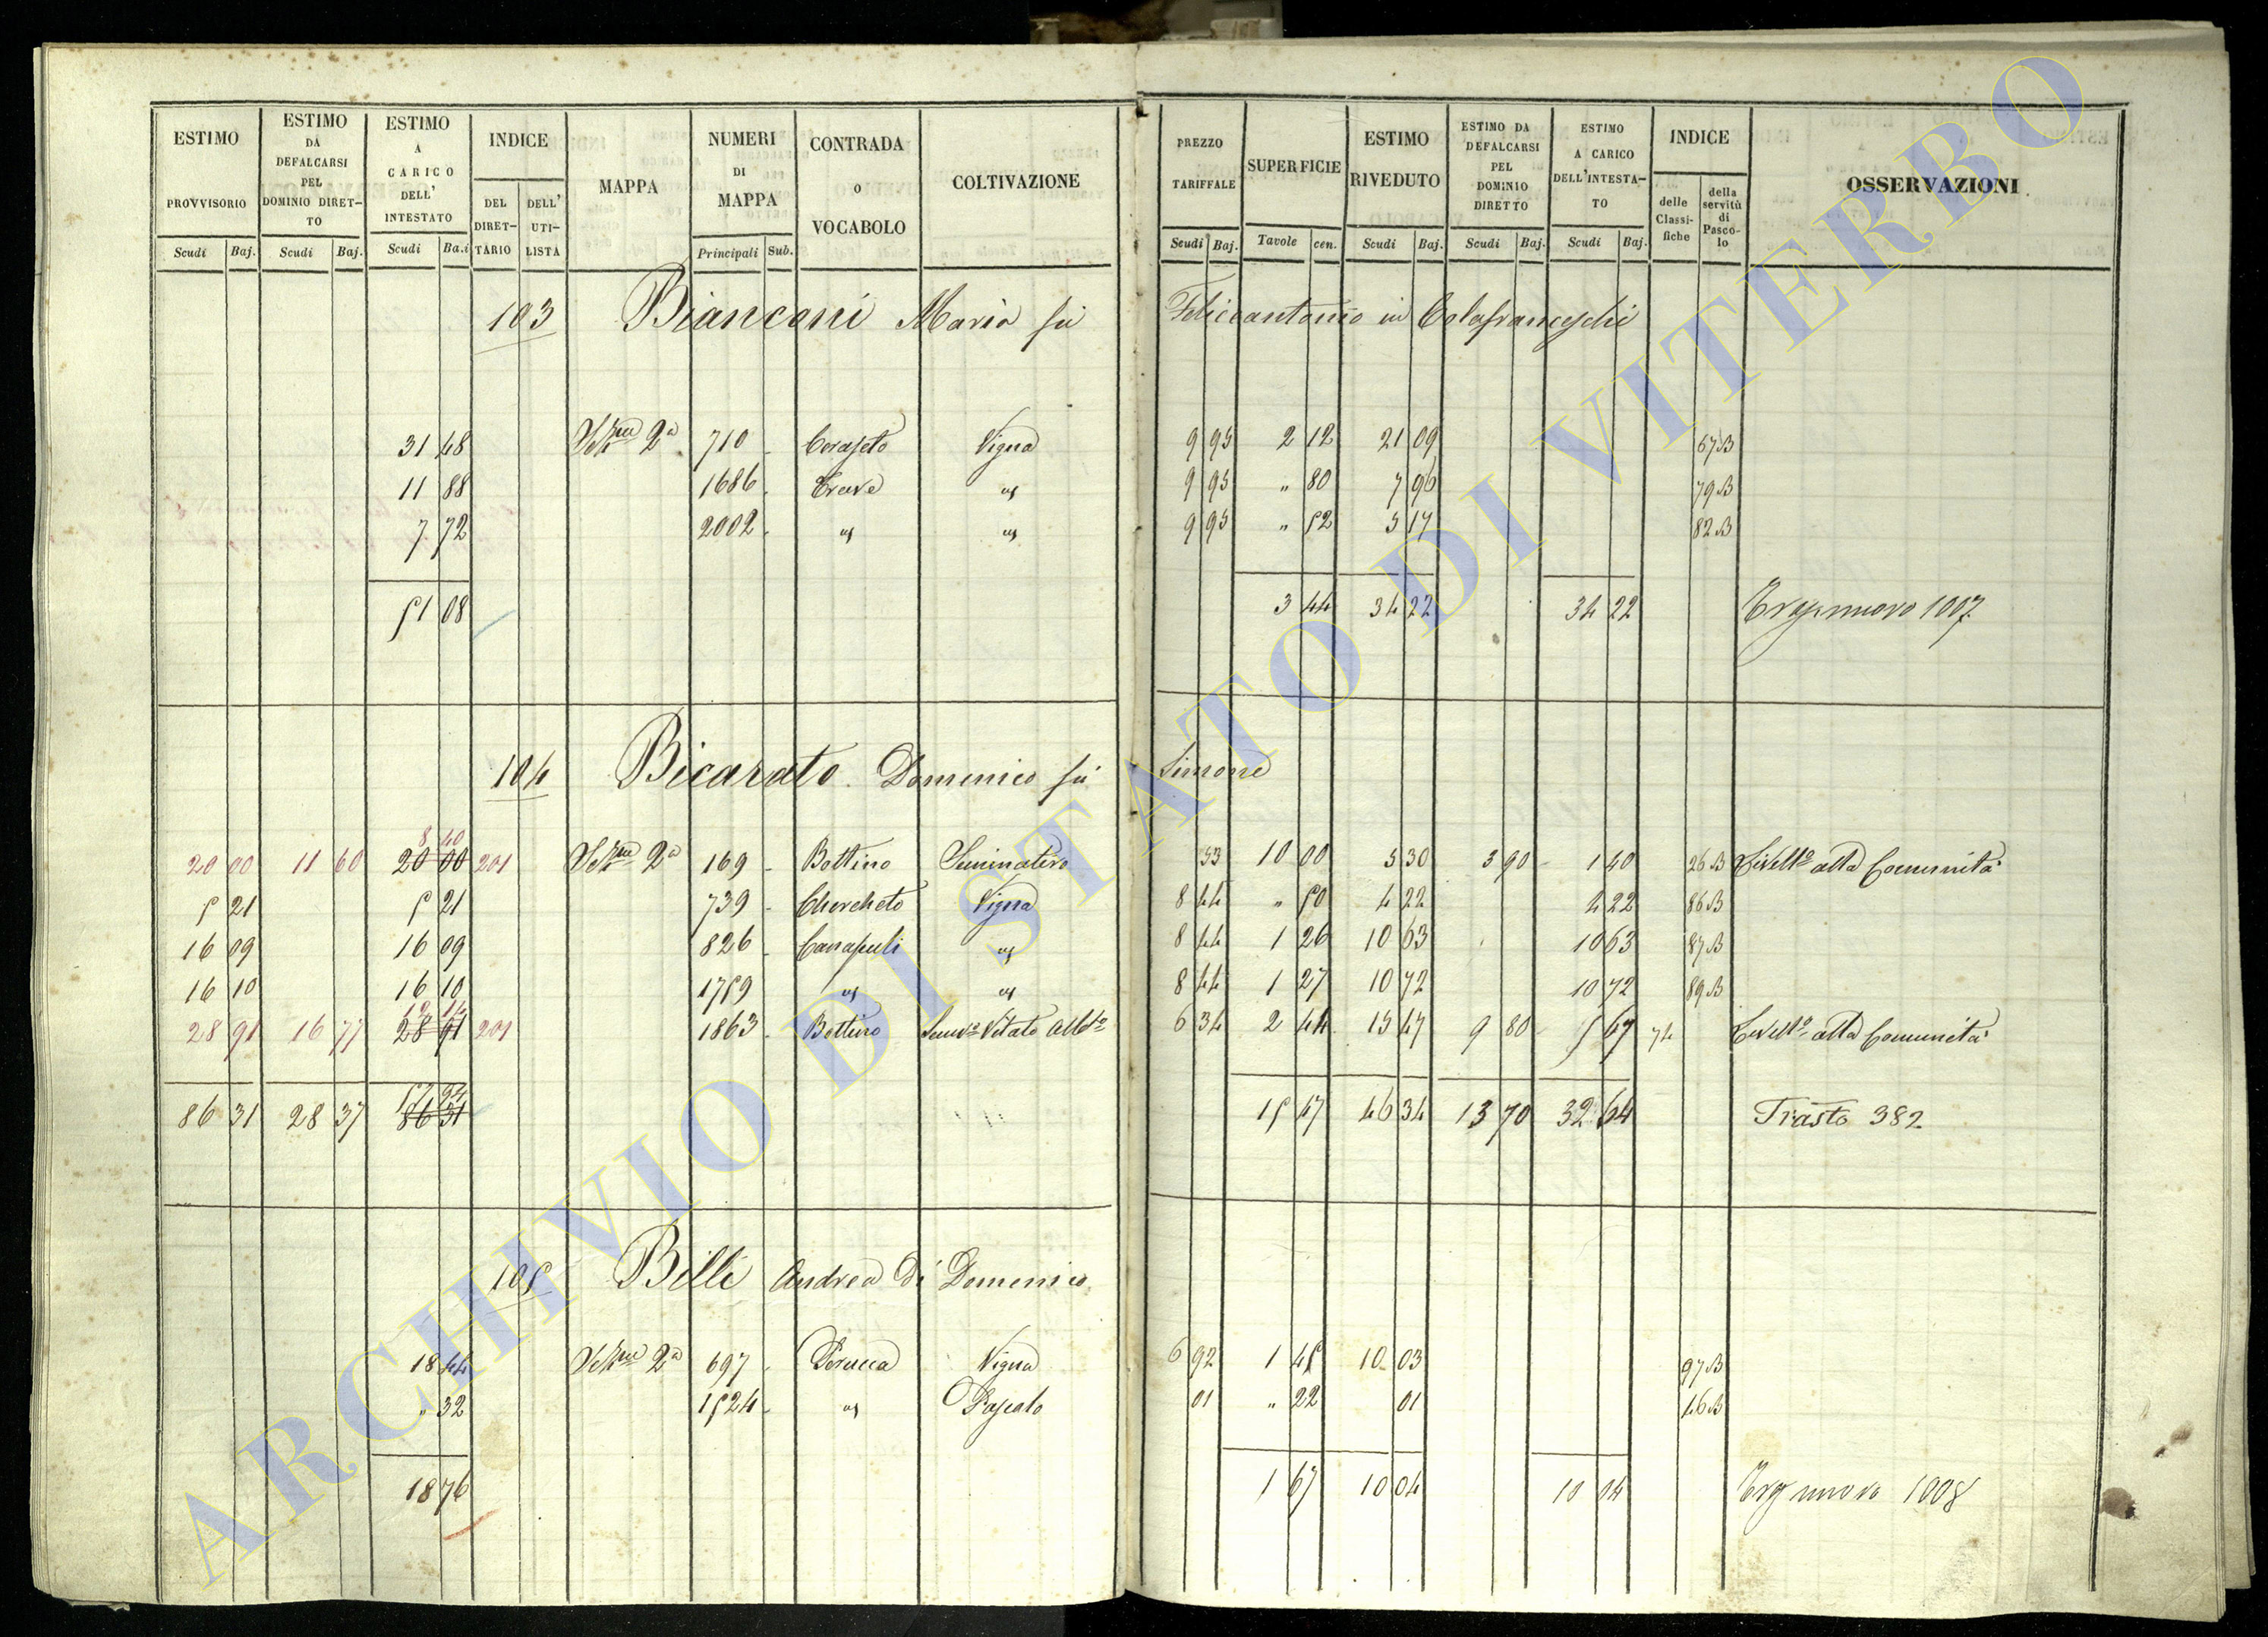 ESTIMO PROVVISORIO Scudi Baj.
ESTIMO DA DEFALCARSI PEL DOMINIO DIRET-TO Scudi Baj.
ESTIMO A CARICO DELL' INTESTATO Scudi Ba.i
INDICE DEL DIRET-TARIO DELL' UTI-LISTA
MAPPA
NUMERI DI MAPPA Principali Sub.
CONTRADA O VOCABOLO
COLTIVAZIONE
PREZZO TARIFFALE Scudi Baj.
SUPERFICIE Tavole cen.
ESTIMO RIVEDUTO Scudi Baj.
ESTIMO DA DEFALCARSI PEL DOMINIO DIRETTO Scudi Baj.
ESTIMO A CARICO DELL'INTESTA-TO Scudi Baj.
INDICE delle Classi-fiche della servitù di Pasco-lo
OSSERVAZIONI
103 Bianconi Maria fu Feliceantonio in Colafranceschi
31 48 2a 710 Vigna 9 95 2 12 21 09 67 B
11 88 1686 9 95 " 80 7 96 79 B
7 72 2002 9 95 " 52 5 17 82 B
51 08 3 44 34 22 34 22 1007
104 Bicarato Domenico fu Simone
8 40
20 00 11 60 20 00 201 2a 169 Bottino Seminativo 53 10 00 5 30 3 90 1 40 26 B Livello alla Comunità
5 21 5 21 739 Chercheto Vigna 8 44 " 50 4 22 4 22 86 B
16 09 16 09 826 Canapuli 8 44 1 26 10 63 10 63 87 B
16 10 16 10 1759 8 44 1 27 10 72 10 72 89 B
12 14
28 91 16 77 28 91 201 1863 Bottino Semvo Vitato Albto 6 34 2 44 15 47 9 80 5 67 74 Livello alla Comunità
57 94
86 31 28 37 86 31 15 47 46 34 13 70 32 64 Trasto 382
105 Billi Andrea di Domenico
18 44 2a 697 Perucca Vigna 6 92 1 45 10 03 97 B
" 32 1524 Pascolo 01 " 22 01 46 B
18 76 1 67 10 04 10 04 1008
ARCHIVIO DI STATO DI VITERBO